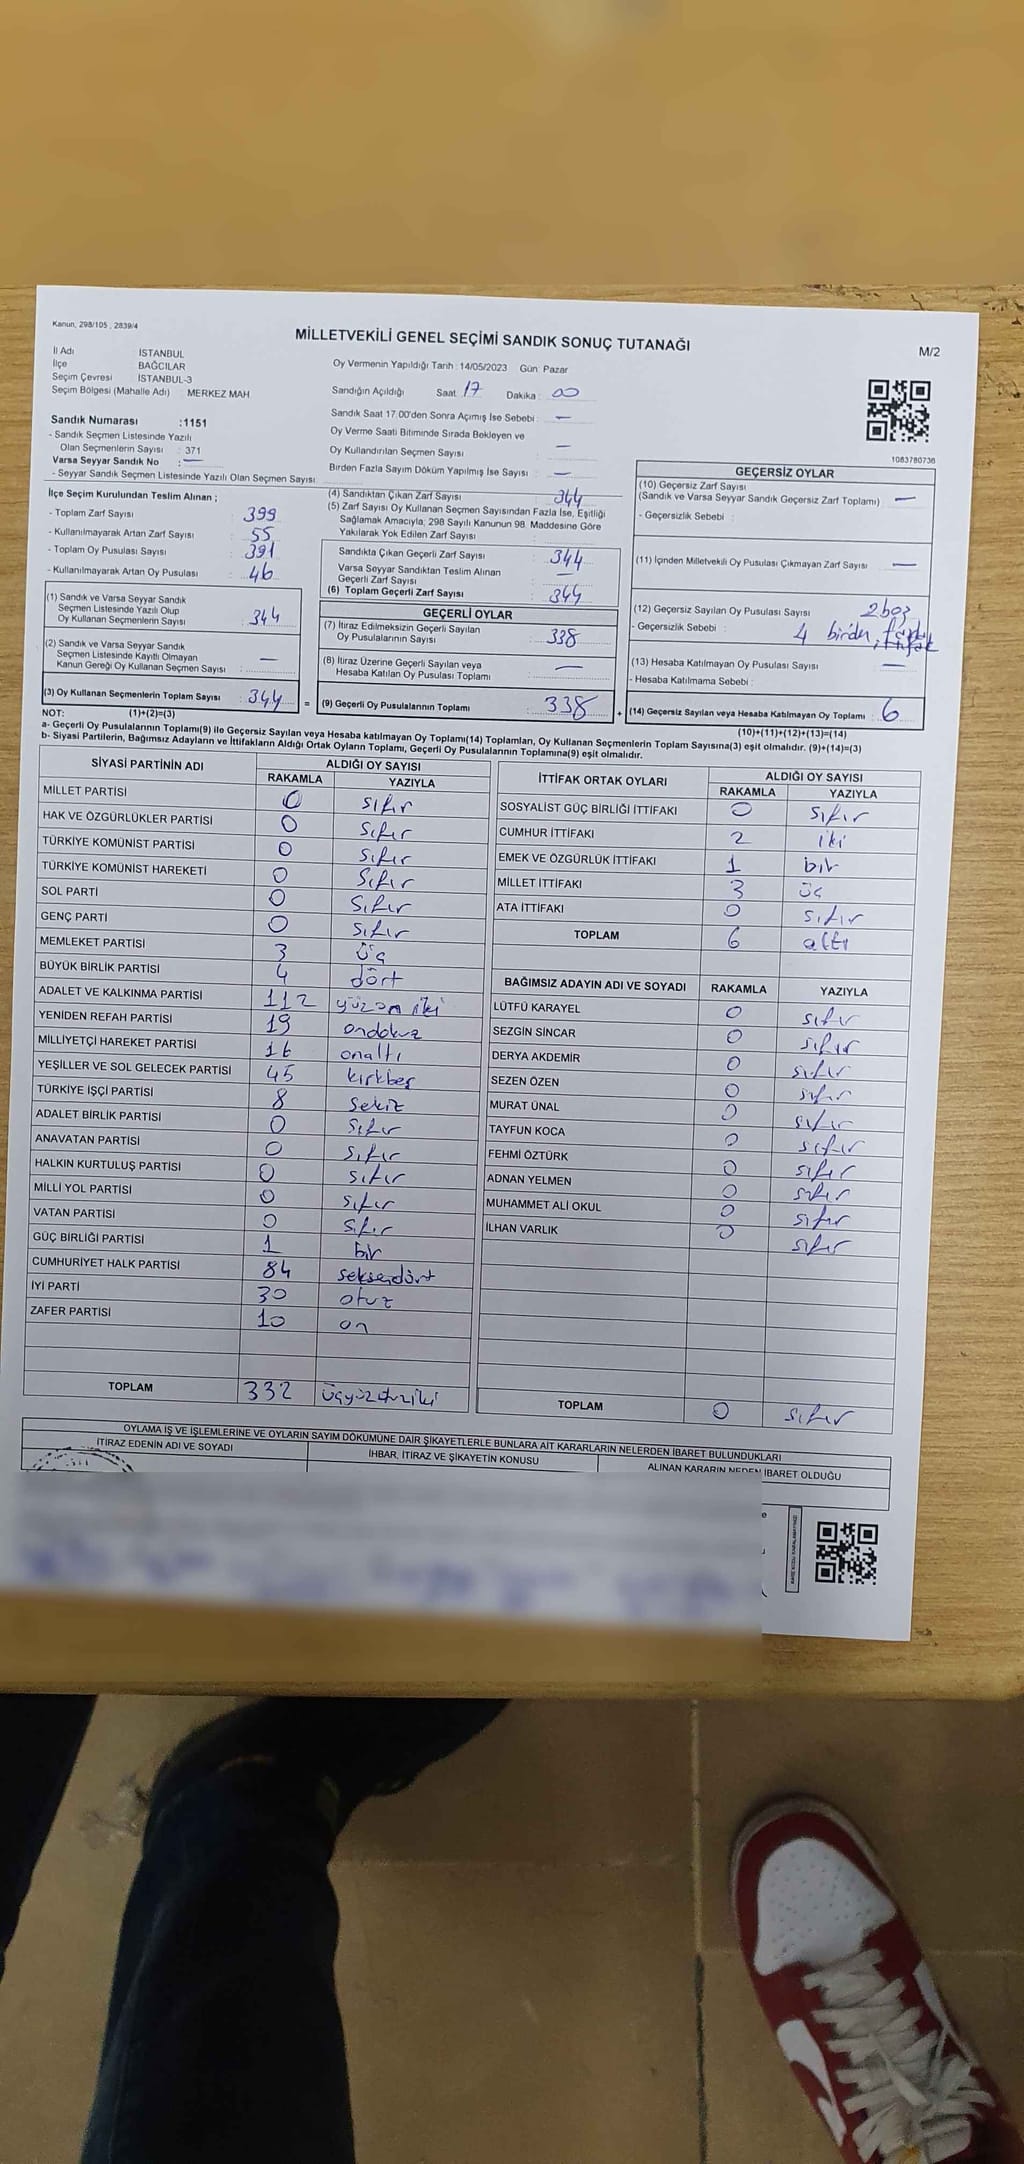 Kanun, 298/105 , 2839/4
MİLLETVEKİLİ GENEL SEÇİMİ SANDIK SONUÇ TUTANAĞI
M/2
İl Adı İSTANBUL
İlçe BAĞCILAR
Seçim Çevresi İSTANBUL-3
Seçim Bölgesi (Mahalle Adı) MERKEZ MAH
Oy Vermenin Yapıldığı Tarih : 14/05/2023 Gün: Pazar
Sandığın Açıldığı Saat 17 Dakika : 00
Sandık Saat 17.00'den Sonra Açımış İse Sebebi : —
Oy Verme Saati Bitiminde Sırada Bekleyen ve
Oy Kullandırılan Seçmen Sayısı —
Birden Fazla Sayım Döküm Yapılmış İse Sayısı : —
Sandık Numarası :1151
- Sandık Seçmen Listesinde Yazılı
Olan Seçmenlerin Sayısı : 371
Varsa Seyyar Sandık No : —
- Seyyar Sandık Seçmen Listesinde Yazılı Olan Seçmen Sayısı
1083780736
İlçe Seçim Kurulundan Teslim Alınan ;
- Toplam Zarf Sayısı : 399
- Kullanılmayarak Artan Zarf Sayısı : 55
- Toplam Oy Pusulası Sayısı : 391
- Kullanılmayarak Artan Oy Pusulası : 46
(1) Sandık ve Varsa Seyyar Sandık
Seçmen Listesinde Yazılı Olup
Oy Kullanan Seçmenlerin Sayısı : 344
(2) Sandık ve Varsa Seyyar Sandık
Seçmen Listesinde Kayıtlı Olmayan
Kanun Gereği Oy Kullanan Seçmen Sayısı : —
(3) Oy Kullanan Seçmenlerin Toplam Sayısı : 344 =
(1)+(2)=(3)
(4) Sandıktan Çıkan Zarf Sayısı : 344
(5) Zarf Sayısı Oy Kullanan Seçmen Sayısından Fazla İse, Eşitliği
Sağlamak Amacıyla, 298 Sayılı Kanunun 98. Maddesine Göre
Yakılarak Yok Edilen Zarf Sayısı
Sandıkta Çıkan Geçerli Zarf Sayısı : 344
Varsa Seyyar Sandıktan Teslim Alınan
Geçerli Zarf Sayısı : —
(6) Toplam Geçerli Zarf Sayısı : 344
GEÇERLİ OYLAR
(7) İtiraz Edilmeksizin Geçerli Sayılan
Oy Pusulalarının Sayısı : 338
(8) İtiraz Üzerine Geçerli Sayılan veya
Hesaba Katılan Oy Pusulası Toplamı : —
(9) Geçerli Oy Pusulalarının Toplamı : 338 +
GEÇERSİZ OYLAR
(10) Geçersiz Zarf Sayısı
(Sandık ve Varsa Seyyar Sandık Geçersiz Zarf Toplamı) : —
- Geçersizlik Sebebi :
(11) İçinden Milletvekili Oy Pusulası Çıkmayan Zarf Sayısı : —
(12) Geçersiz Sayılan Oy Pusulası Sayısı 2 boş
- Geçersizlik Sebebi : 4 birden fazla
(13) Hesaba Katılmayan Oy Pusulası Sayısı : —
- Hesaba Katılmama Sebebi :
(14) Geçersiz Sayılan veya Hesaba Katılmayan Oy Toplamı : 6
(10)+(11)+(12)+(13)=(14)
NOT:
a- Geçerli Oy Pusulalarının Toplamı(9) ile Geçersiz Sayılan veya Hesaba katılmayan Oy Toplamı(14) Toplamları, Oy Kullanan Seçmenlerin Toplam Sayısına(3) eşit olmalıdır. (9)+(14)=(3)
b- Siyasi Partilerin, Bağımsız Adayların ve İttifakların Aldığı Ortak Oyların Toplamı, Geçerli Oy Pusulalarının Toplamına(9) eşit olmalıdır.
SİYASİ PARTİNİN ADI ALDIĞI OY SAYISI
RAKAMLA YAZIYLA
MİLLET PARTİSİ 0 sıfır
HAK VE ÖZGÜRLÜKLER PARTİSİ 0 sıfır
TÜRKİYE KOMÜNİST PARTİSİ 0 sıfır
TÜRKİYE KOMÜNİST HAREKETİ 0 sıfır
SOL PARTİ 0 sıfır
GENÇ PARTİ 0 sıfır
MEMLEKET PARTİSİ 3 üç
BÜYÜK BİRLİK PARTİSİ 4 dört
ADALET VE KALKINMA PARTİSİ 112 yüzon iki
YENİDEN REFAH PARTİSİ 19 ondokuz
MİLLİYETÇİ HAREKET PARTİSİ 16 onaltı
YEŞİLLER VE SOL GELECEK PARTİSİ 45 kırkbeş
TÜRKİYE İŞÇİ PARTİSİ 8 sekiz
ADALET BİRLİK PARTİSİ 0 sıfır
ANAVATAN PARTİSİ 0 sıfır
HALKIN KURTULUŞ PARTİSİ 0 sıfır
MİLLİ YOL PARTİSİ 0 sıfır
VATAN PARTİSİ 0 sıfır
GÜÇ BİRLİĞİ PARTİSİ 1 bir
CUMHURİYET HALK PARTİSİ 84 seksendört
İYİ PARTİ 30 otuz
ZAFER PARTİSİ 10 on
TOPLAM 332 üçyüzotuziki
İTTİFAK ORTAK OYLARI ALDIĞI OY SAYISI
RAKAMLA YAZIYLA
SOSYALİST GÜÇ BİRLİĞİ İTTİFAKI 0 sıfır
CUMHUR İTTİFAKI 2 iki
EMEK VE ÖZGÜRLÜK İTTİFAKI 1 bir
MİLLET İTTİFAKI 3 üç
ATA İTTİFAKI 0 sıfır
TOPLAM 6 altı
BAĞIMSIZ ADAYIN ADI VE SOYADI RAKAMLA YAZIYLA
LÜTFÜ KARAYEL 0 sıfır
SEZGİN SİNCAR 0 sıfır
DERYA AKDEMİR 0 sıfır
SEZEN ÖZEN 0 sıfır
MURAT ÜNAL 0 sıfır
TAYFUN KOCA 0 sıfır
FEHMİ ÖZTÜRK 0 sıfır
ADNAN YELMEN 0 sıfır
MUHAMMET ALİ OKUL 0 sıfır
İLHAN VARLIK 0 sıfır
TOPLAM 0 sıfır
OYLAMA İŞ VE İŞLEMLERİNE VE OYLARIN SAYIM DÖKÜMÜNE DAİR ŞİKAYETLERLE BUNLARA AİT KARARLARIN NELERDEN İBARET BULUNDUKLARI
İTİRAZ EDENİN ADI VE SOYADI İHBAR, İTİRAZ VE ŞİKAYETİN KONUSU ALINAN KARARIN NEDEN İBARET OLDUĞU